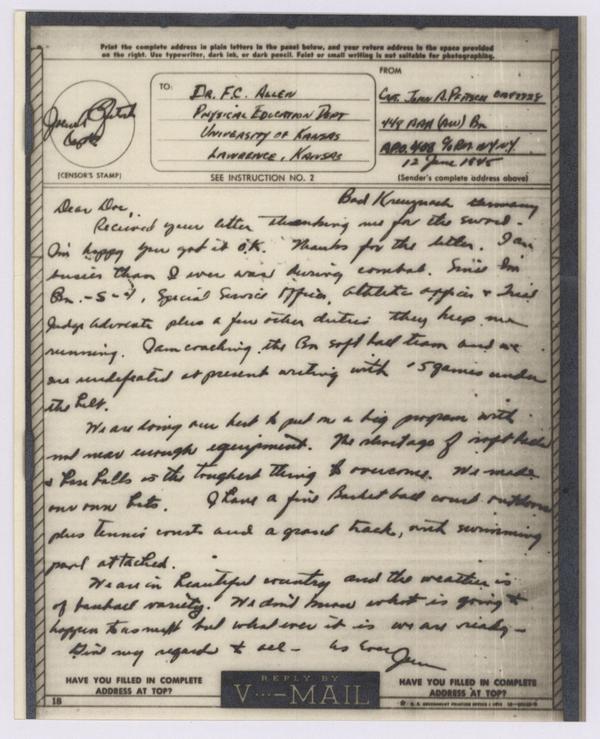 Print the complete address in plain letters in the panel below, and your return address in the space provided
on the right. Use typewriter, dark ink, or dark pencil. Faint or small writing is not suitable for photographing.
TO:
FROM
DR. F.C. ALLEN
PHYSICAL EDUCATION DEPT
UNIVERSITY OF KANSAS
LAWRENCE, KANSAS
CAPT. JOHN A.
448 AAA (AW) BN
APO 408 % P.M. NY NY
12 June 1945
(CENSOR'S STAMP)
SEE INSTRUCTION NO. 2
(Sender's complete address above)
Bad Kreuznach Germany
Dear Doc,
Received your letter thanking me for the sword-
I'm happy you got it O.K. Thanks for the letter. I am
busier than I ever was during combat. Since I'm
Bn. -S-, Special Service Officer, Athletic officer + Trial
Judge Advocate plus a few other duties they keep me
running. I am coaching the Bn soft ball team and we
are undefeated at present writing with 15 games under
the belt.
We are doing our best to put on a big program with
not near enough equipment. The shortage of soft balls
& base balls is the toughest thing to overcome. We made
our own bats. I have a fine Basket ball court outdoors
plus tennis courts and a grand track, with swimming
pool attached.
We are in beautiful country and the weather is
of baseball variety. We don't know what is going to
happen to us next but what ever it is we are ready-
Give my regards to all - As Ever
HAVE YOU FILLED IN COMPLETE
ADDRESS AT TOP?
REPLY BY
V···—MAIL
HAVE YOU FILLED IN COMPLETE
ADDRESS AT TOP?
18